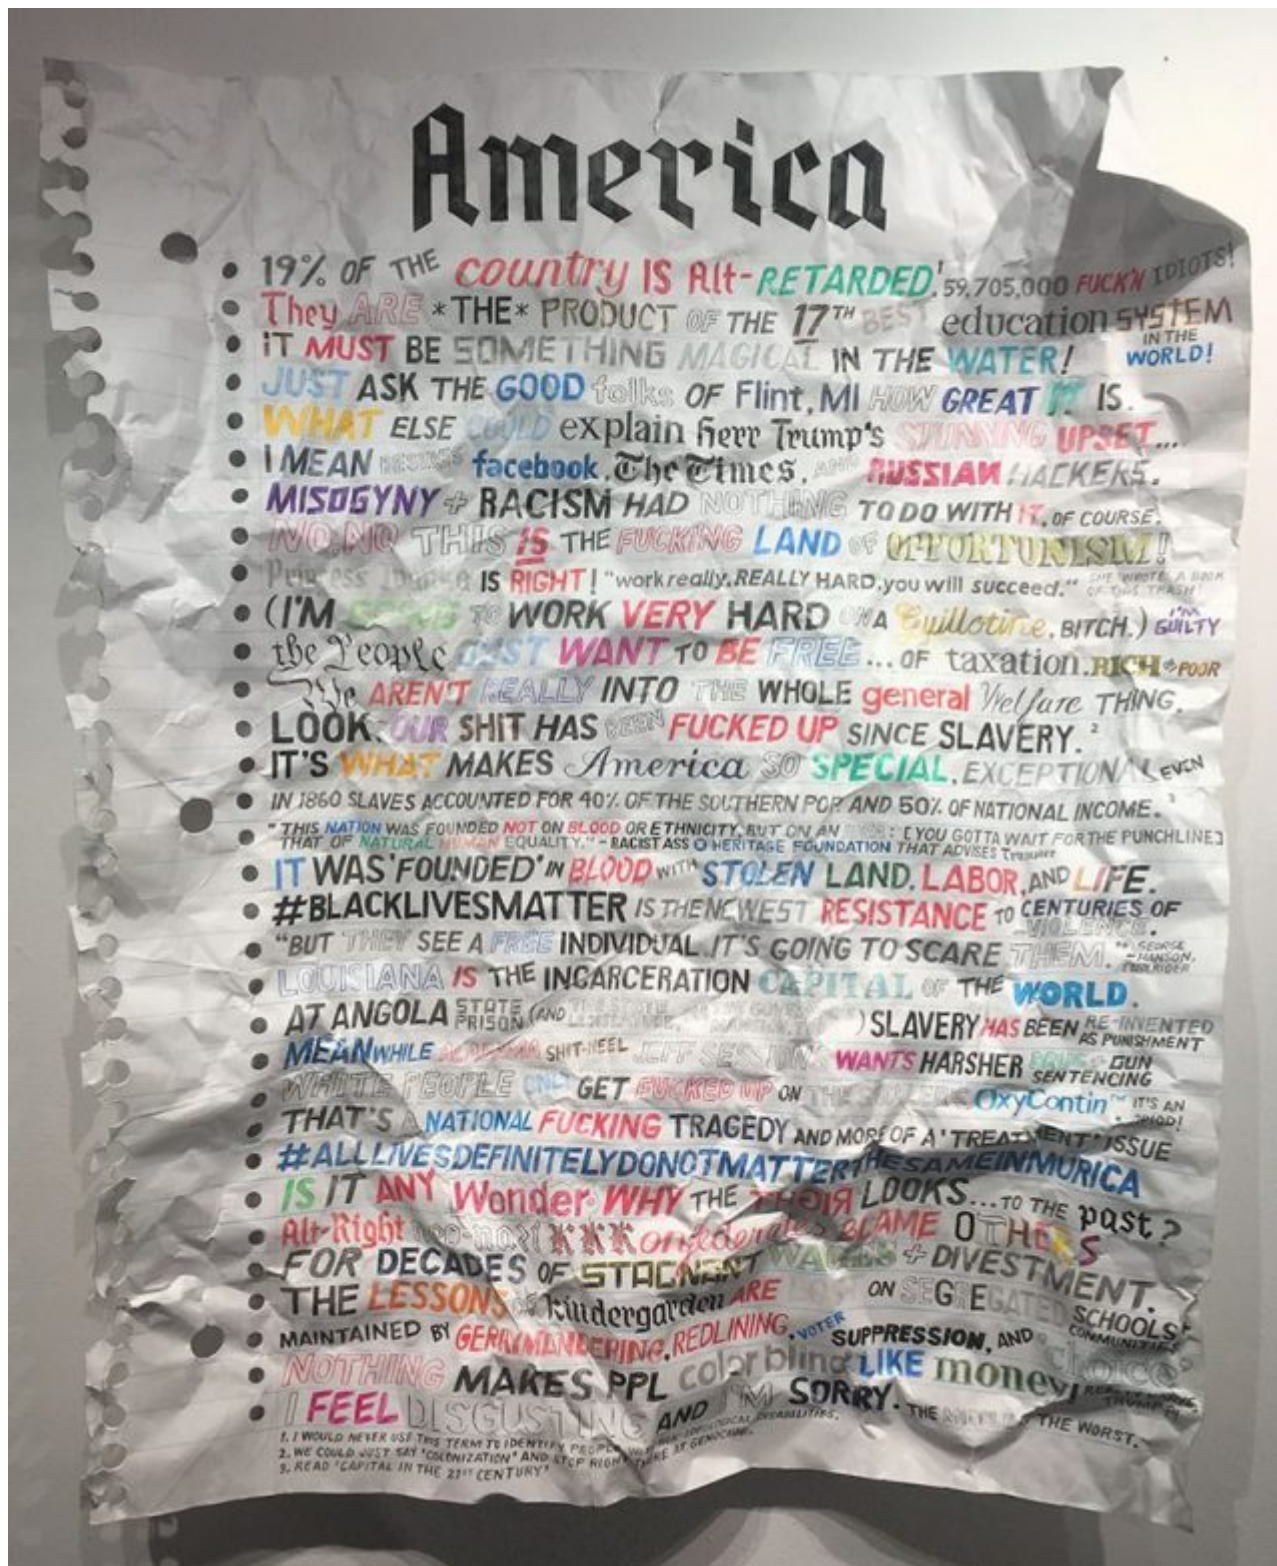 America
19% OF THE country IS Alt-RETARDED.¹ 59,705,000 FUCK'N IDIOTS!
They ARE *THE* PRODUCT OF THE 17TH BEST education SYSTEM IN THE WORLD!
iT MUST BE SOMETHING MAGICAL IN THE WATER!
JUST ASK THE GOOD folks OF Flint, MI HOW GREAT IT IS.
WHAT ELSE COULD explain Herr Trump's STUNNING UPSET...
I MEAN BESIDES facebook, The Times, AND RUSSIAN HACKERS.
MISOGYNY + RACISM HAD NOTHING TO DO WITH IT, OF COURSE.
NO, NO THIS IS THE FUCKING LAND OF OPPORTUNISM!
Princess Ivanka IS RIGHT! "work really, REALLY HARD, you will succeed." SHE WROTE A BOOK OF THIS TRASH!
(I'M GOING TO WORK VERY HARD ON A Guillotine, BITCH.) I'M GUILTY
the People JUST WANT TO BE FREE... OF taxation. RICH + POOR
We AREN'T REALLY INTO THE WHOLE general Welfare THING.
LOOK, OUR SHIT HAS BEEN FUCKED UP SINCE SLAVERY.²
IT'S WHAT MAKES America SO SPECIAL, EXCEPTIONAL EVEN
IN 1860 SLAVES ACCOUNTED FOR 40% OF THE SOUTHERN POP AND 50% OF NATIONAL INCOME.³
"THIS NATION WAS FOUNDED NOT ON BLOOD OR ETHNICITY, BUT ON AN IDEA: [YOU GOTTA WAIT FOR THE PUNCHLINE]
THAT OF NATURAL HUMAN EQUALITY." - RACIST ASS HERITAGE FOUNDATION THAT ADVISES
IT WAS 'FOUNDED' IN BLOOD WITH STOLEN LAND, LABOR, AND LIFE.
#BLACKLIVESMATTER IS THE NEWEST RESISTANCE TO CENTURIES OF VIOLENCE.
"BUT THEY SEE A FREE INDIVIDUAL, IT'S GOING TO SCARE THEM." - GEORGE HANSON,
LOUISIANA IS THE INCARCERATION CAPITAL OF THE WORLD.
AT ANGOLA STATE PRISON (AND ) SLAVERY HAS BEEN RE-INVENTED AS PUNISHMENT
MEANWHILE ALABAMA SHIT-HEEL JEFF SESSIONS WANTS HARSHER DRUG + GUN SENTENCING
WHITE PEOPLE ONLY GET FUCKED UP ON OxyContin™ IT'S AN
THAT'S A NATIONAL FUCKING TRAGEDY AND MORE OF A 'TREATMENT' ISSUE
#ALLLIVESDEFINITELYDONOTMATTERTHESAMEINMURICA
IS IT ANY Wonder WHY THE LOOKS... TO THE past?
Alt-Right neo-nazi KKKonfederates BLAME OTHERS
FOR DECADES OF STAGNANT WAGES + DIVESTMENT.
THE LESSONS OF kindergarden ARE ON SEGREGATED SCHOOLS + COMMUNITIES
MAINTAINED BY GERRYMANDERING, REDLINING, VOTER SUPPRESSION, AND choice
NOTHING MAKES PPL color blind LIKE money!
I FEEL DISGUSTING AND I'M SORRY. THE THE WORST.
1. I WOULD NEVER USE THIS TERM TO IDENTIFY PEOPLE DISABILITIES.
2. WE COULD JUST SAY "COLONIZATION" AND STOP RIGHT THERE AT GENOCIDE.
3. READ "CAPITAL IN THE 21ST CENTURY"